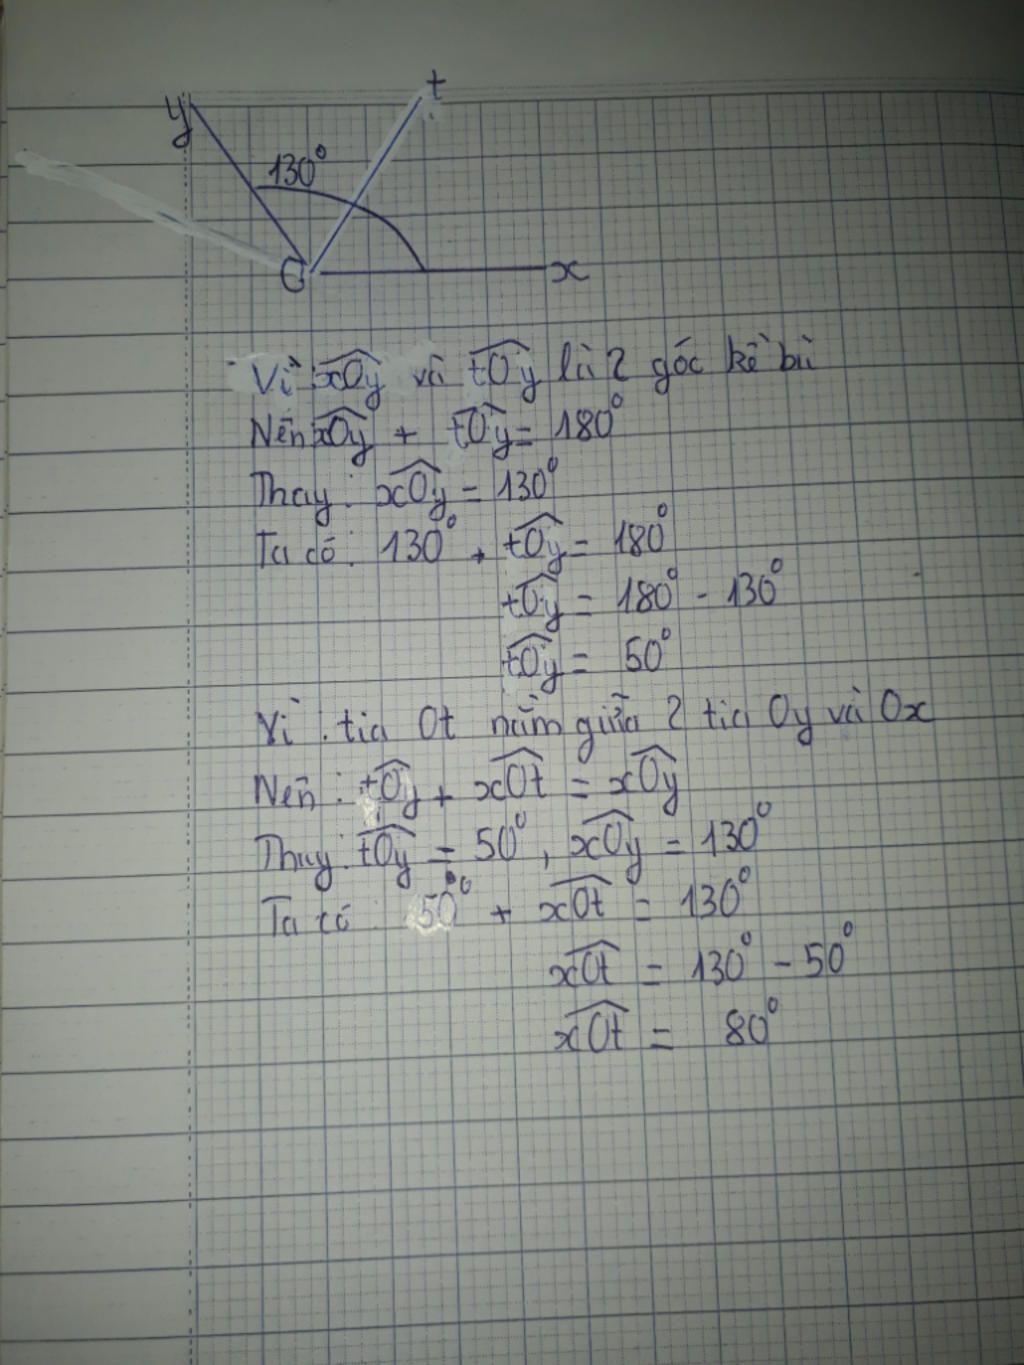 t
y
130°
O
x
Vì xOy và tOy là 2 góc kề bù
Nên xOy + tOy = 180°
Thay: xOy = 130°
Ta có: 130° + tOy = 180°
tOy = 180° - 130°
tOy = 50°
Vì: tia Ot nằm giữa 2 tia Oy và Ox
Nên: tOy + xOt = xOy
Thay: tOy = 50°, xOy = 130°
Ta có: 50° + xOt = 130°
xOt = 130° - 50°
xOt = 80°